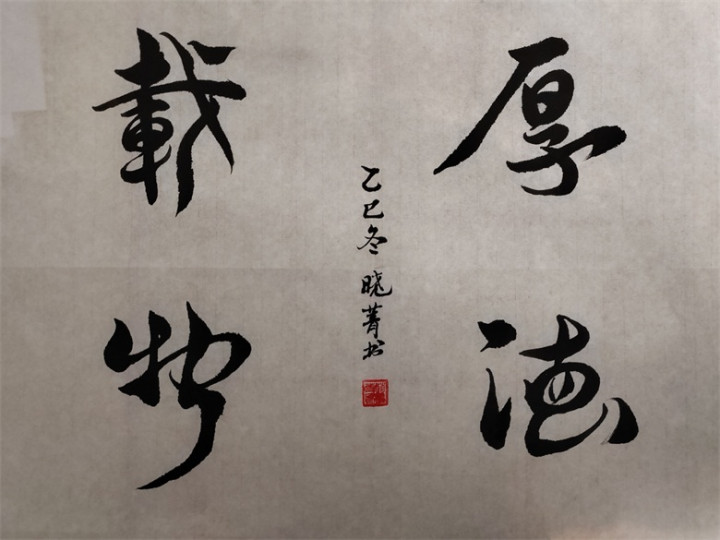 厚德
載物
乙巳冬 晓菁书